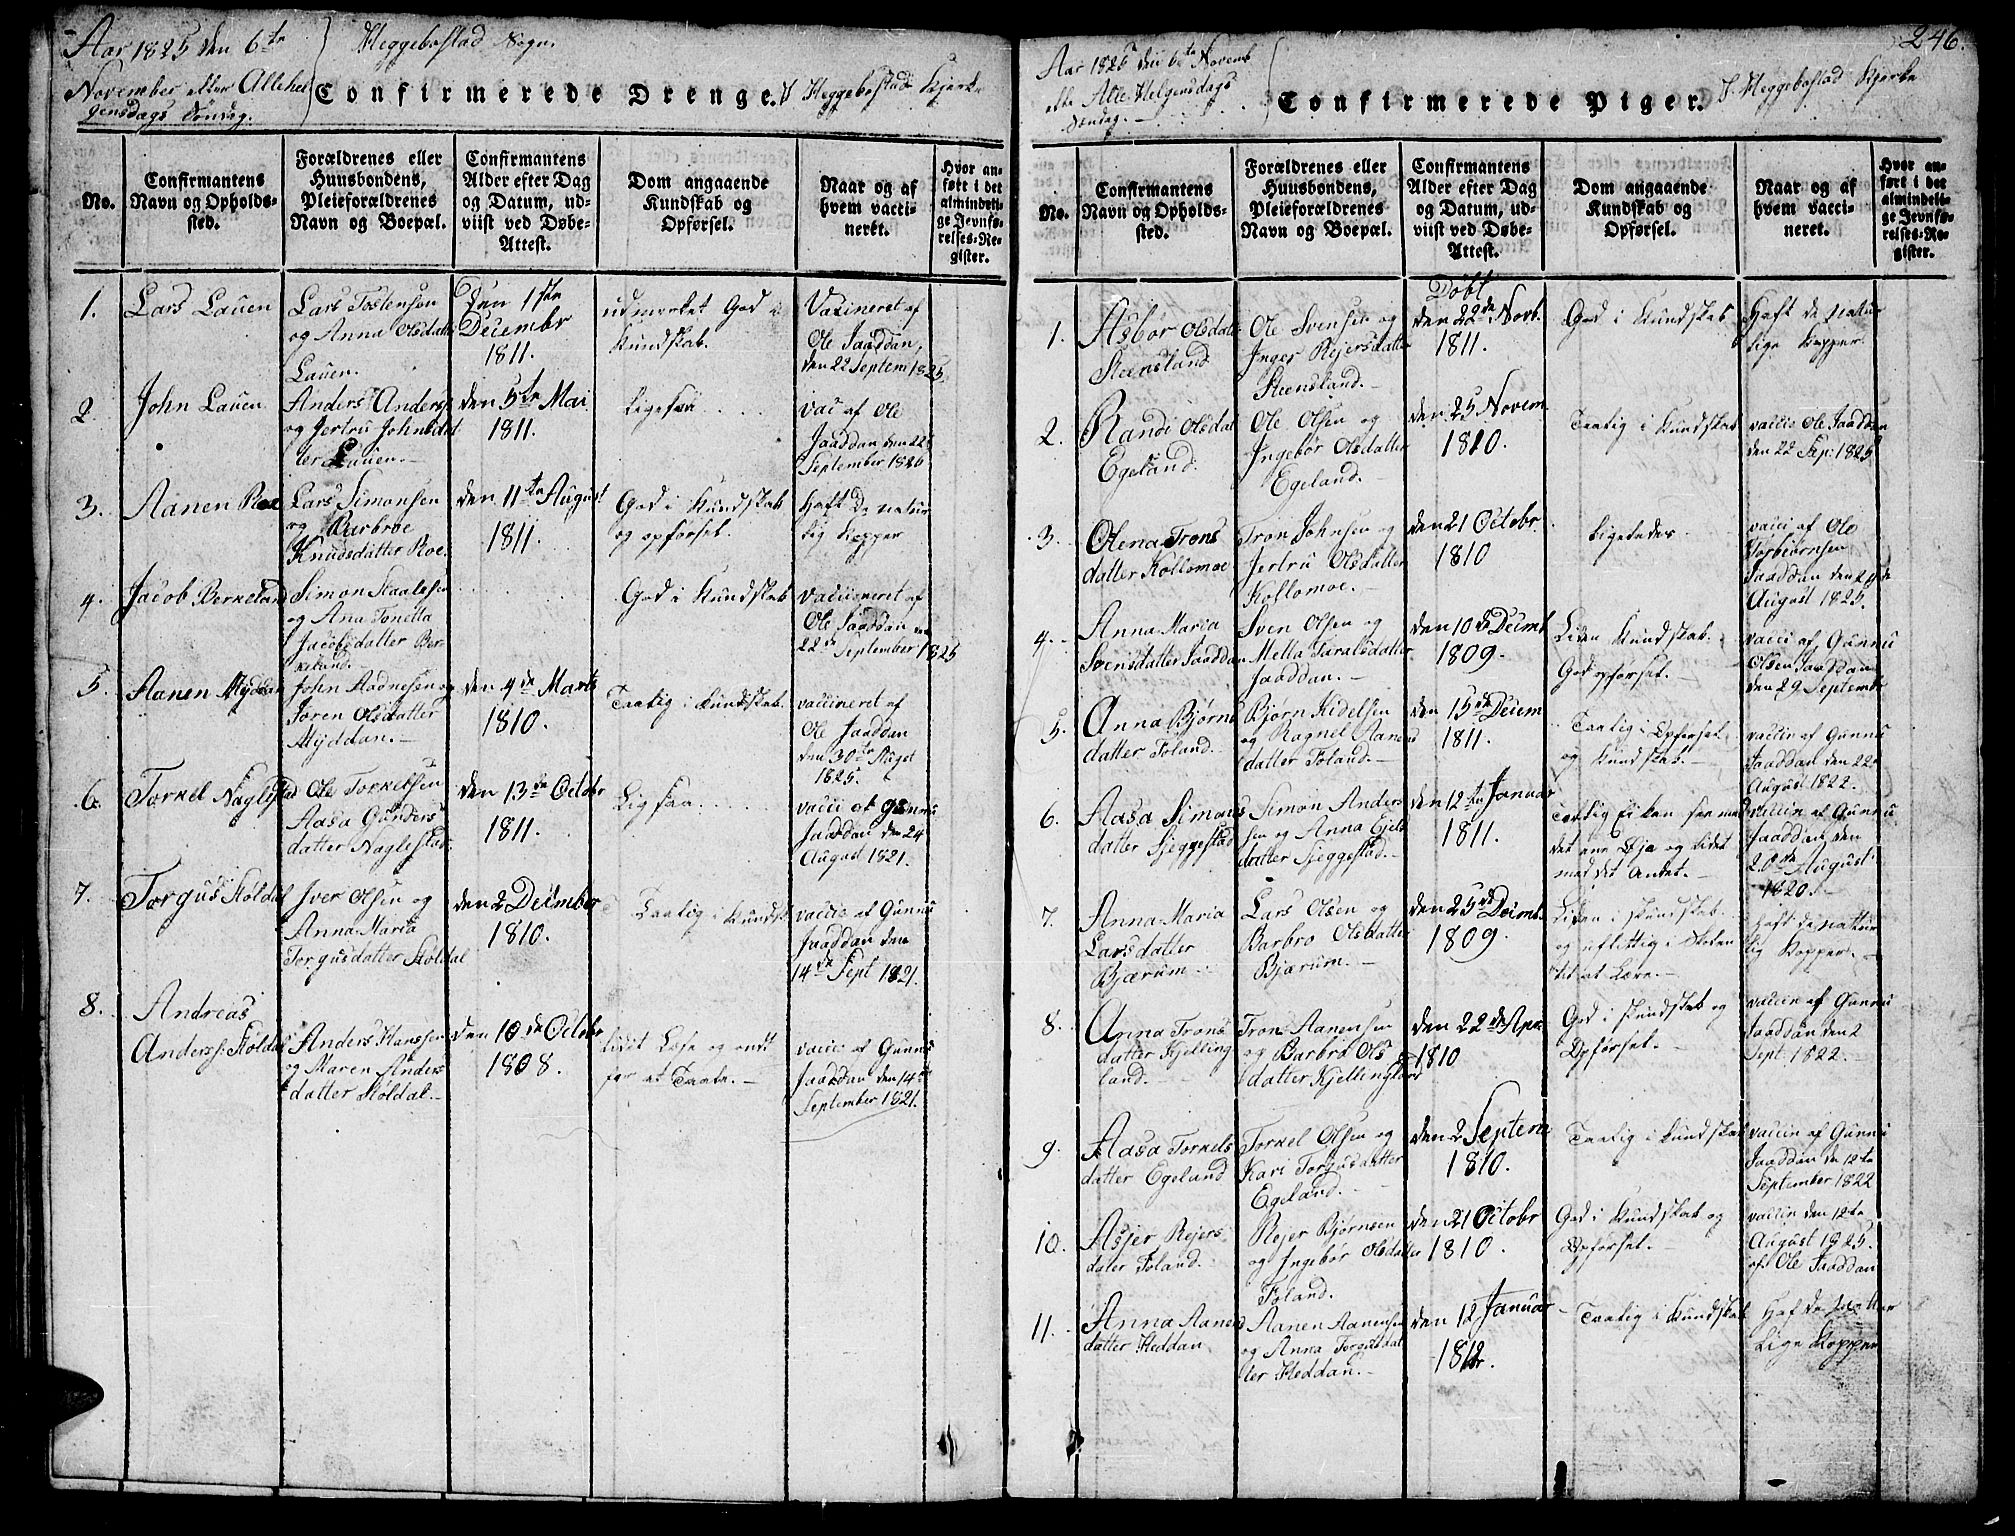 Aar 1825 den 6te
November eller Allehel
gensdags Søndag.
Heggebøstad Sogn.
Confirmerede Drenge. I Heggebøstad Kjerke
No.
Confirmantens
Navn og Opholds-
sted.
Forældrenes eller
Huusbondens,
Pleieforældrenes
Navn og Boepæl.
Confirmantens
Alder efter Dag
og Datum, ud-
viist ved Døbe-
Attest.
Dom angaaende
Kundskab og
Opførsel.
Naar og af
hvem vacci-
neret.
Hvor an-
ført i det
almindeli-
ge Jevnfø-
relses-Re-
gister.
1. Lars Lauen
Lars Tostensen
og Anna Olsdatter
Lauen.
Den 1ste
Decembr
1811.
udmerket God i
Kundskab.
Vaxineret af
Ole Jaaddan,
den 22 Septem 1825.
2. John Lauen
Anders Anders
og Jertru Johnsdat
ter Lauen.
den 5te Mai
1811.
Ligesaa
vac af Ole
Jaaddan den 22
September 1826
3. Aanen Roe
Lars Simonsen
og Barbroe
Knudsdatter Roe.
den 11te August
1811.
God i Kundskab
og opførsel.
Haft De natur
lig Kopper
4. Jacob Berkeland
Simon Staalesen
og Ana Tonetta
Jacobsdatter Ber
keland.
God i Kundskab
Vaccineret af
Ole Jaaddan den
22de September 1825
5. Aanen Myddan
John Aadnesen og
Joren Olsdatter
Myddan.
den 4de Marts
1810.
Taalig i Kundskab.
vaccineret af
Ole Jaaddan
den 30te Augst
1825.
6. Torkel Naglestad
Ole Torkelsen
Aasa Gunders
datter Naglestad
den 13de Octobr
1811.
Ligesaa
vacci af Gunnu
Jaaddan den 24
August 1821.
7. Torgus Støldal
Iver Olsen og
Anna Maria
Torgusdatter Støldal
den 2 December
1810.
Taalig i Kundsk
vaccie af Gunnu
Jaaddan den
14de Sept 1821.
8. Andreas
Anders: Støldal
Anders Hanssen
og Maren Anders
datter Støldal.
den 10de Octobr
1808.
lidet Læse og ondt
for at Taale.
vacci af Gunnu
Jaaddan den 14de
September 1821.
246.
Aar 1825 den 6te Novemb
elle Alle Helgensdags
Søndag.
Confirmerede Piger. I Heggebøstad Kjerke
No.
Confirmantens
Navn og Opholds-
sted.
Forældrenes eller
Huusbondens,
Pleieforældrenes
Navn og Boepæl.
Confirmantens
Alder efter Dag
og Datum, ud-
viist ved Døbe-
Attest.
Dom angaaende
Kundskab og
Opførsel.
Naar og af
hvem vacci-
neret.
Hvor an-
ført i det
almindeli-
ge Jevnfø-
relses-Re-
gister.
1. Asbør Olsdatter
Steensland
Ole Svensen og
Inger Rejersdatter
Steensland.
Døbt
den 22de Novb.
1811.
God i Kundskab
Haft de natur
lige Kopper.
2. Randi Olsdat
Egeland.
Ole Olsen og
Ingebør Olsdatter
Egeland.
den 25 Novem
1810.
Taalig i Kundskab
vaccie Ole Jaaddan
den 22 Sep: 1825
3. Olena Trons
datter Kollomoe
Tron Johnsen og
Jertru Olsdatter
Kollomoe.
den 21 Octobr
1810
Ligeledes
vacci af Ole
Torbiørnsen
Jaaddan den 29de
August 1825.
4. Anna Maria
Svensdatter Jaaddan
Sven Olsen og
Metta Taralsdatter
Jaaddan.
den 10de Decmb
1809.
Liden Kundskab.
God opførsel.
vacci af Gunnu
Olsen Jaaddan
den 29 Septembr
5. Anna Bjørns
datter Foland.
Bjørn Kidelsen
og Ragnel Aanens
datter Foland.
den 15de Decem
1811.
Taalig i Opførsel
og Kundskab.
vaccin af Gunnu
Jaaddan den 22
August 1822.
6. Aasa Simons
datter Sjeggestad
Simon Anders
sen og Anna Ejels
datter Sjeggestad.
den 12te Januar
1811.
Taalig Ei kan see med
det ene Øje og lidet
med det Andet.
vaccin af Gunnu
Jaaddan den
20de August
1820.
7. Anna Maria
Larsdatter
Bjærum
Lars Olsen og
Barbro Olsdatter
Bjærum.
den 25de Decmb.
1809.
Liden i Kundskab.
og eflettig i Skolen
til at Lære.
Haft de nattur
lig Kopper.
8. Anna Trons
datter Kjelling
land.
Tron Aanensen
og Barbro Ols
datter Kjellingland
den 22de Apr.
1810
God i Kundskab og
Opførsel.
vaccin af Gunnu
Jaaddan den 2
Sept. 1822.
9. Aasa Torkels
datter Egeland
Torkel Olsen og
Kari Torgusdatter
Egeland.
den 2 Septem
1810.
Taalig i Kundskab
vaccin af Gunnu
Jaaddan den 12te
September 1822
10. Asjer Rejers
dater Foland.
Rejer Bjørnsen
og Ingebør Olsdatter
Foland.
den 21 Octobr
1810.
God i Kundskab og
Opførsel.
vaccin den 12te
August 1825.
af Ole Jaaddan
11. Anna Aanens
datter Heddan
Aanen Aanensen
og Anna Torgusdat
ter Heddan.
den 12 Januar
1812.
Taalig i Kundskab
Haf de nattur
Lige Kopper